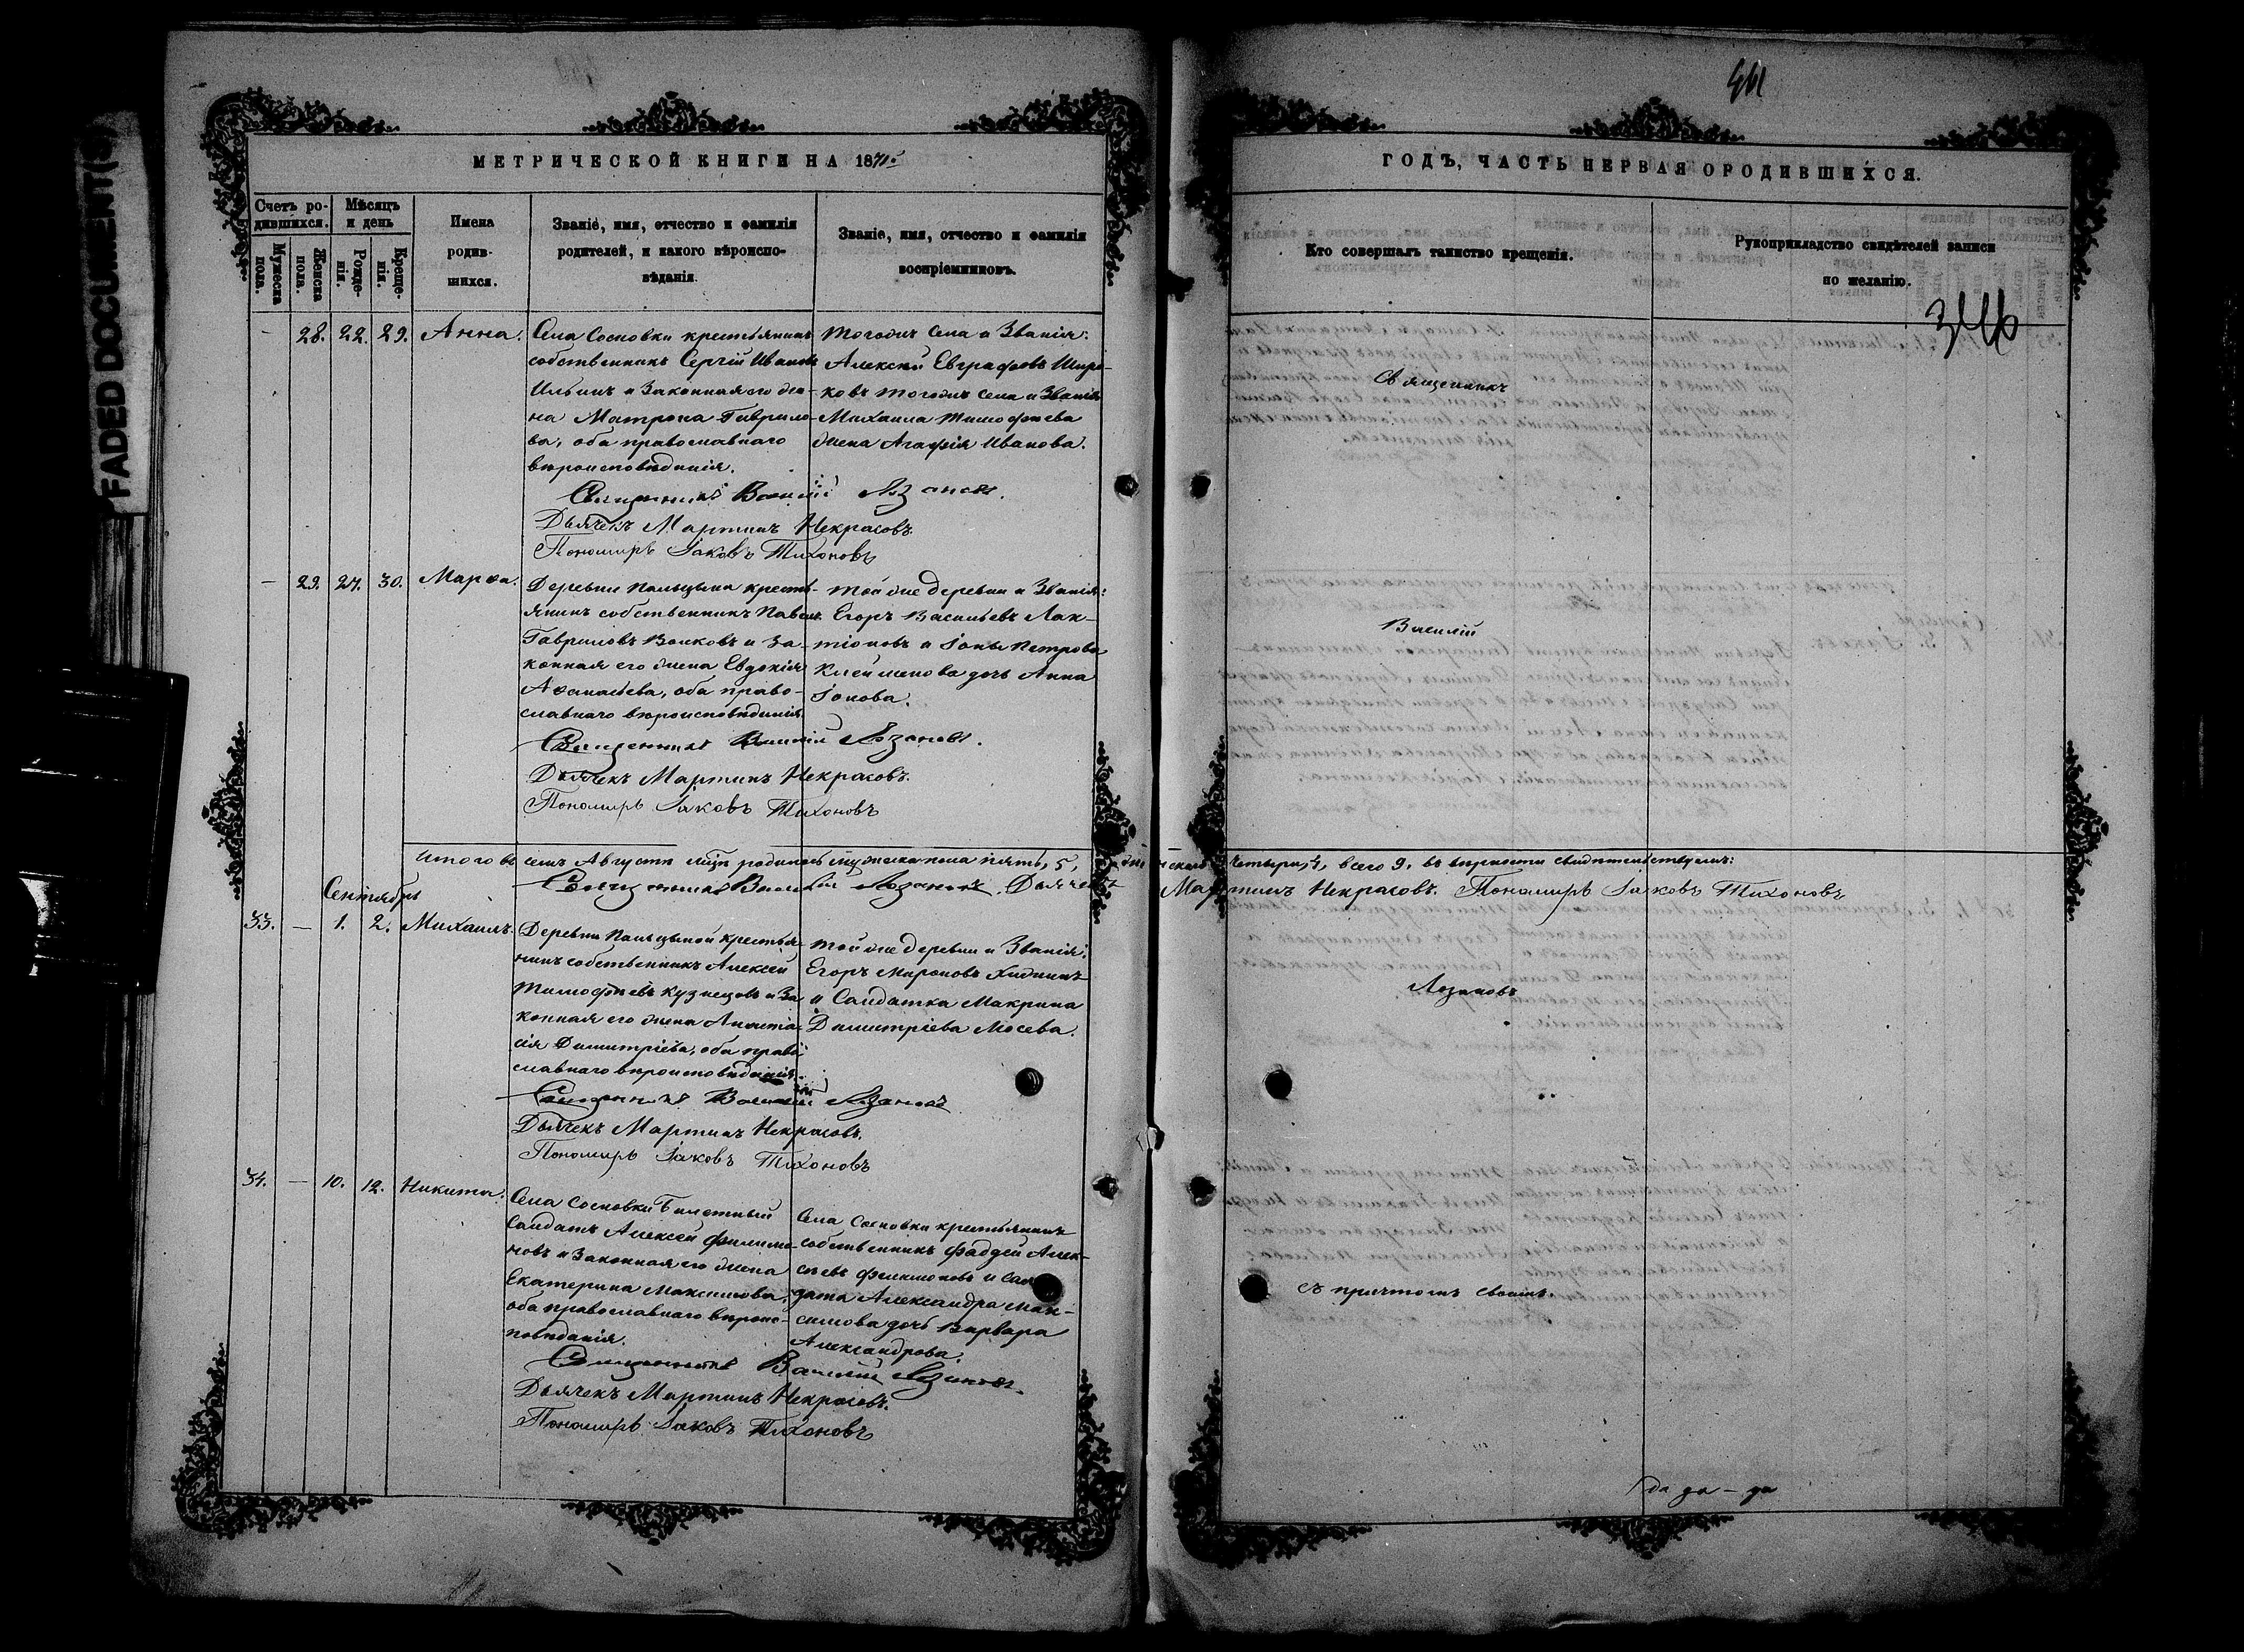 FADED DOCUMENT(S)
461
МЕТРИЧЕСКОЙ КНИГИ НА 1871
ГОДЪ, ЧАСТЬ ПЕРВАЯ О РОДИВШИХСЯ.
Счетъ ро-
дившихся.
Мужеска
пола.
Женска
пола.
Мѣсяцъ
и день
Рожде-
нія.
Креще-
нія.
Имена
родив-
шихся.
Званіе, имя, отчество и фамилія
родителей, и какого вѣроиспо-
вѣданія.
Званіе, имя, отчество и фамилія
воспріемниковъ.
Кто совершалъ таинство крещенія.
Рукоприкладство свидѣтелей записи
по желанію.
346
– 28. 22. 29. Анна.
Села Сосновки крестьянинъ
собственникъ Сергій Ивановъ
Ильинъ и законная его же-
на Матрона Гаврило-
ва, оба православнаго
вѣроисповѣданія.
Тогожъ села и званія:
Алексѣй Евграфовъ Широ-
ковъ тогожъ села и званія
Михаила Тимофѣева
жена Агафія Иванова.
Священникъ Василій Лозановъ.
Дьячекъ Мартинъ Некрасовъ.
Пономарь Іаковъ Тихоновъ
– 29. 27. 30. Марѳа.
Деревни Пальцына кресть-
янинъ собственникъ Павелъ
Гавриловъ Волковъ и за-
конная его жена Евдокія
Аѳанасьева, оба право-
славнаго вѣроисповѣданія
Той же деревни и званія:
Егоръ Васильевъ Лак-
тіоновъ и Іоны Петрова
Клейменова дочь Анна
Іонова.
Священникъ Василій Лозановъ.
Дьячекъ Мартинъ Некрасовъ.
Пономарь Іаковъ Тихоновъ
Итого въ семъ Августѣ м‑цѣ родилось мужеска пола пять, 5, женска четыри, 4, всего 9. въ вѣрности свидѣтельствуемъ:
Священникъ Василій Лозановъ. Дьячекъ Мартинъ Некрасовъ. Пономарь Іаковъ Тихоновъ
Сентябрь
33. – 1. 2. Михаилъ.
Деревни Пальцыной крестья-
нинъ собственникъ Алексѣй
Тимофѣевъ Кузнецовъ и за
конная его жена Анаста-
сія Димитріева, оба право
славнаго вѣроисповѣданія.
Той же деревни и званія:
Егоръ Мироновъ
и Салдатка Макрина
Димитріева Мосева.
Священникъ Василій Лозановъ
Дьячекъ Мартинъ Некрасовъ.
Пономарь Іаковъ Тихоновъ
34. – 10. 12. Никита.
Села Сосновки Билетный
Салдатъ Алексѣй Филимо-
новъ и законная его жена
Екатерина Максимова,
оба православнаго вѣроис-
повѣданія.
Села Сосновки крестьянинъ
собственникъ Фаддей Алек-
сѣевъ Филимоновъ и сал
дата Александра Мак-
симова дочь Варвара
Александрова.
Священникъ Василій Лозановъ.
Дьячекъ Мартинъ Некрасовъ.
Пономарь Іаковъ Тихоновъ
Священникъ
Василій
Лозановъ
съ причтомъ своимъ.